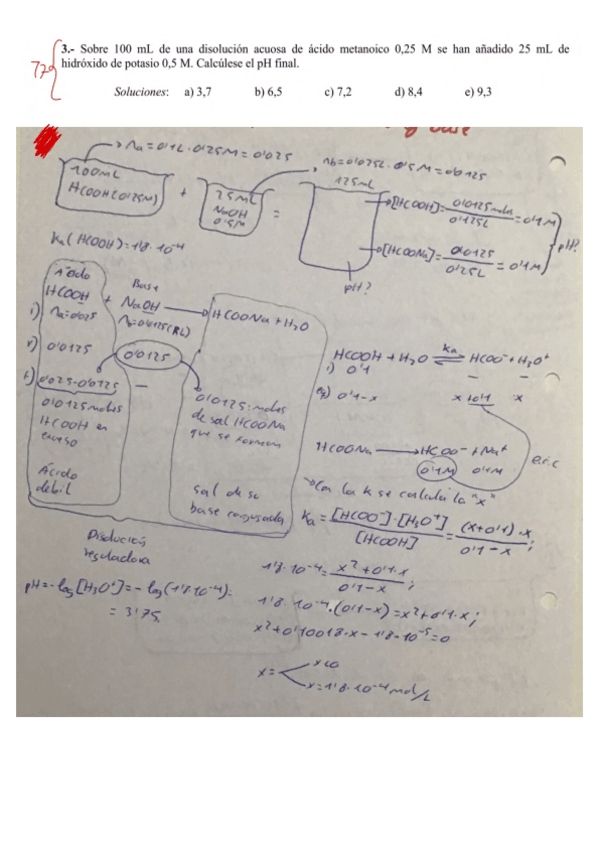 77
3.- Sobre 100 mL de una disolución acuosa de ácido metanoico 0,25 M se han añadido 25 mL de
hidróxido de potasio 0,5 M. Calcúlese el pH final.
Soluciones: a) 3,7 b) 6,5 c) 7,2 d) 8,4 e) 9,3
base
na = 0'1L · 0'25M = 0'025
nb = 0'025L · 0'5M = 0'0125
100mL
HCOOH (0'25M)
+
25mL
NaOH
0'5M
=
125mL
[HCOOH] = 0'0125 moles / 0'125L = 0'1M
[HCOONa] = 0'0125 / 0'125L = 0'1M
pH?
pH?
Ka (HCOOH) = 1'8·10⁻⁴
Ácido Base
HCOOH + NaOH → HCOONa + H₂O
i) na=0'025 nb=0'0125 (RL)
r) 0'0125 0'0125
f) 0'025-0'0125 —
0'0125 moles
HCOOH en
exceso
Ácido
débil
0'0125 moles
de sal HCOONa
que se forman
sal de su
base conjugada
Disolución
reguladora
pH = -log [H₃O⁺] = -log (1'8·10⁻⁴) =
= 3'75
HCOOH + H₂O ⇌ HCOO⁻ + H₃O⁺
Ka
i) 0'1 — —
eq) 0'1-x x+0'1 x
HCOONa → HCOO⁻ + Na⁺
0'1M 0'1M
e.i.c
Con la k se calcula la "x"
Ka = [HCOO⁻]·[H₃O⁺] / [HCOOH] = (x+0'1)·x / 0'1-x ;
1'8·10⁻⁴ = x² + 0'1·x / 0'1-x ;
1'8·10⁻⁴·(0'1-x) = x² + 0'1·x ;
x² + 0'10018·x - 1'8·10⁻⁵ = 0
x = x<0
x = 1'8·10⁻⁴ mol/L